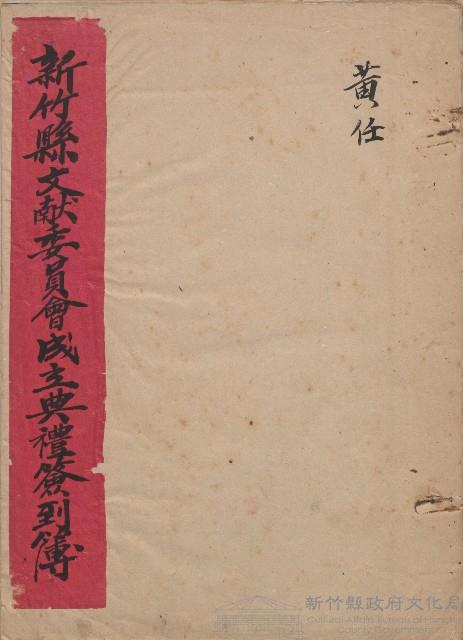 黃任
新竹縣文献委員會成立典禮簽到簿
新竹縣政府文化局
Cultural Affairs Bureau of Hsinchu
County Government